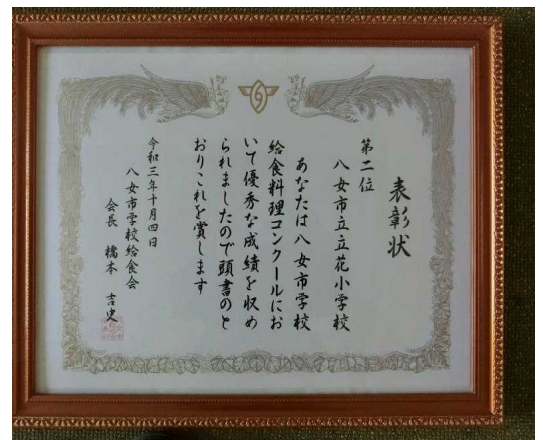 表彰状
第二位
八女市立立花小学校
あなたは八女市学校
給食料理コンクールにお
いて優秀な成績を収め
られましたので頭書のと
おりこれを賞します
令和三年十月四日
八女市学校給食会
会長 橋本 吉史